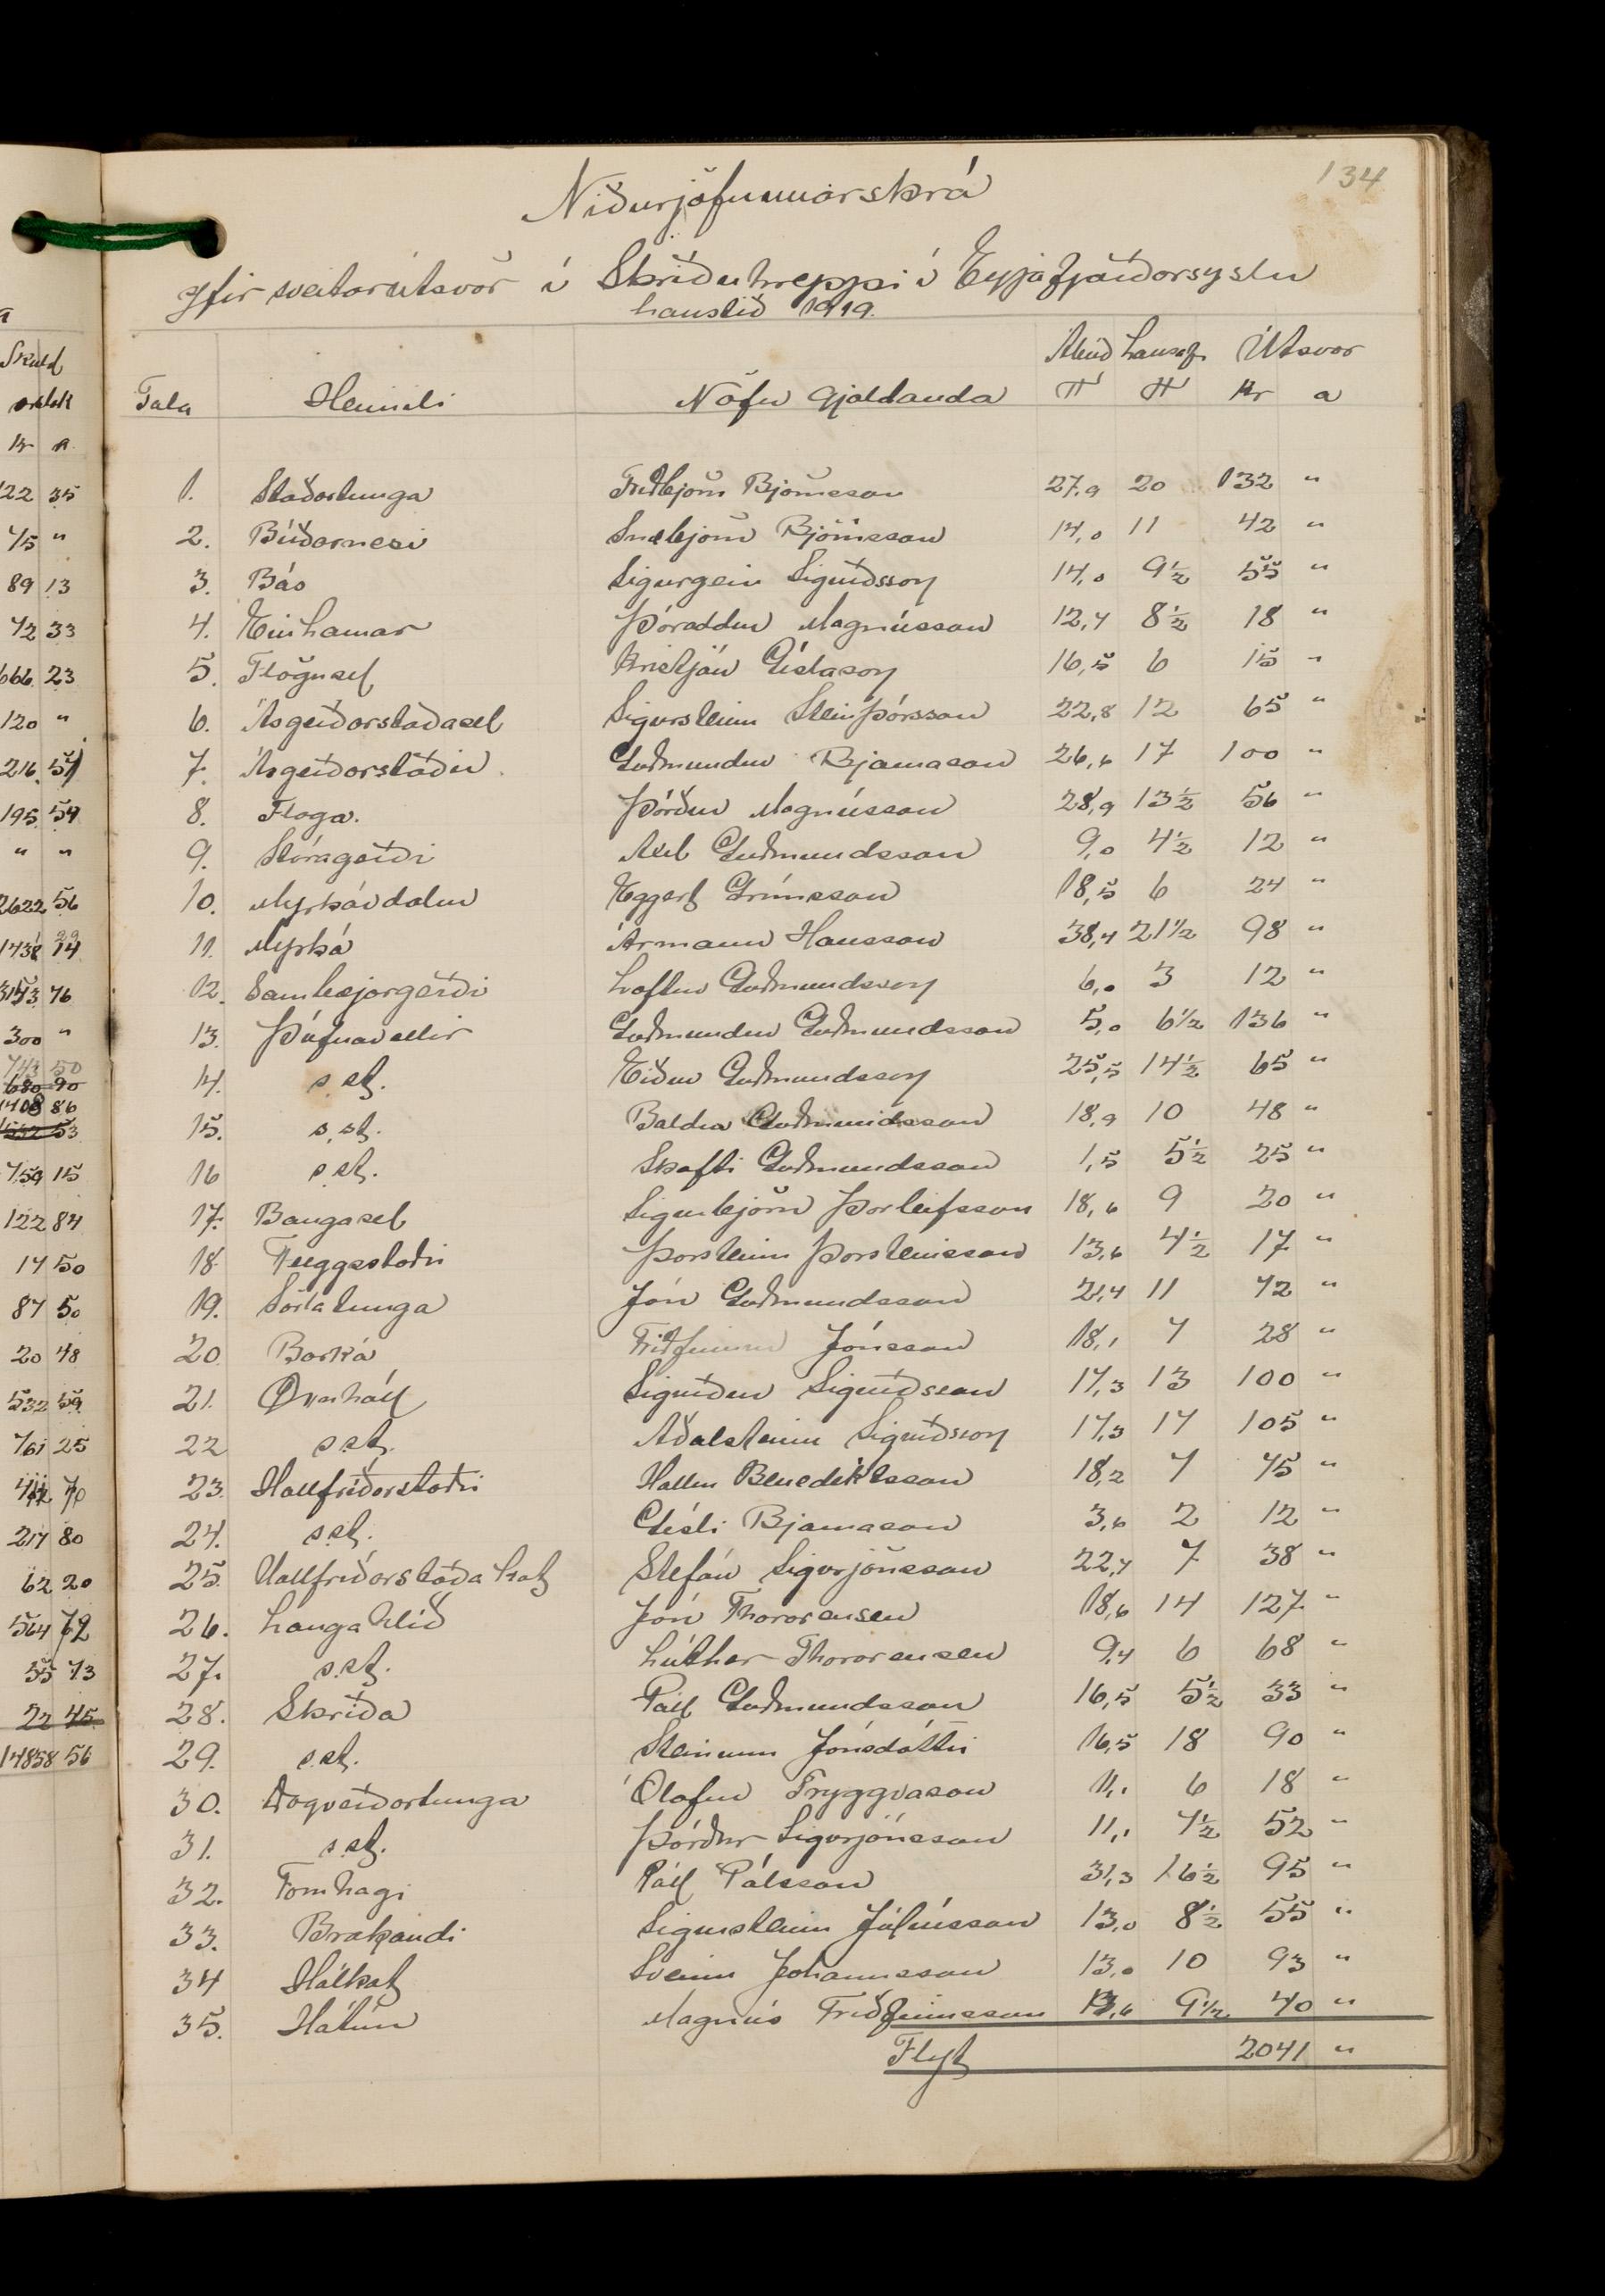 134
Niðurjöfnunarskrá
yfir sveitarútsvör í Skriðuhreppi í Eyjafjarðarsyslu
haustið 1919.
Ábúð Lausafj. Útsvar
Tala Heimili Nöfn Gjaldanda H H Kr a
1. Staðartunga Friðbjörn Björnsson 27,9 20 132 "
2. Búðarnesi Snæbjörn Björnsson 14,0 11 42 "
3. Bás Sigurgeir Sigurðsson 14,0 9½ 55 "
4. Einhamar Þóroddur Magnússon 12,4 8½ 18 "
5. Flögusel Kristján Gíslason 16,5 6 15 "
6. Ásgerðarstaðasel Sigursteinn Steinþórsson 22,8 12 65 "
7. Ásgerðarstaðir Guðmundur Bjarnason 26,6 17 100 "
8. Flaga. Þórður Magnússon 28,9 13½ 56 "
9. Stóragerði Axel Guðmundsson 9,0 4½ 12 "
10. Myrkárdalur Eggert Grímsson 18,5 6 24 "
11. Myrká Ármann Hansson 38,4 21½ 98 "
12. Sambæjargerði Loftur Guðmundsson 6,0 3 12 "
13. Þúfnavellir Guðmundur Guðmundsson 5,0 6½ 136 "
14. s.st. Eiður Guðmundsson 25,5 14½ 65 "
15. s.st. Baldur Guðmundsson 18,9 10 48 "
16 s.st. Skafti Guðmundsson 1,5 5½ 25 "
17. Baugasel Sigurbjörn Þorleifsson 18,6 9 20 "
18. Féeggsstaðir Þorsteinn Þorsteinsson 13,6 4½ 17 "
19. Sörlatunga Jón Guðmundsson 21,4 11 72 "
20 Barká Friðfinnur Jónsson 18,1 7 28 "
21. Öxnhóll Sigurður Sigurðsson 17,3 13 100 "
22 s.st. Aðalsteinn Sigurðsson 17,3 17 105 "
23. Hallfríðarstaðir Hallur Benediktsson 18,2 7 75 "
24. s.st. Gísli Bjarnason 3,6 2 12 "
25. Hallfríðarstaða kot Stefán Sigurjónsson 22,7 7 38 "
26. Langahlíð Jón Thorarensen 18,6 14 127 "
27. s.st. Lúther Thorarensen 9,4 6 68 "
28. Skriða Páll Guðmundsson 16,5 5½ 33 "
29. s.st. Steinunn Jónsdóttir 16,5 18 90 "
30. Dagverðartunga Ólafur Tryggvason 11,1 6 18 "
31. s.st. Þórður Sigurjónsson 11,1 7½ 52 "
32. Fornhagi Páll Pálsson 31,3 16½ 95 "
33. Brakandi Sigursteinn Júlíusson 13,0 8½ 55 "
34 Hálkot Sveinn Johannsson 13,0 10 93 "
35. Hátún Magnús Friðfinnsson 13,6 9½ 40 "
Flyt 2041 "
Skuld
Kr a
122 35
75 "
89 13
72 33
666 23
120 "
216 57
195 54
" "
2622 56
1438 14
3153 76
300 "
743 50
680 90
1408 86
759 15
122 84
14 50
87 50
20 48
532 59
761 25
217 80
62 20
564 72
55 73
22 45
14858 56